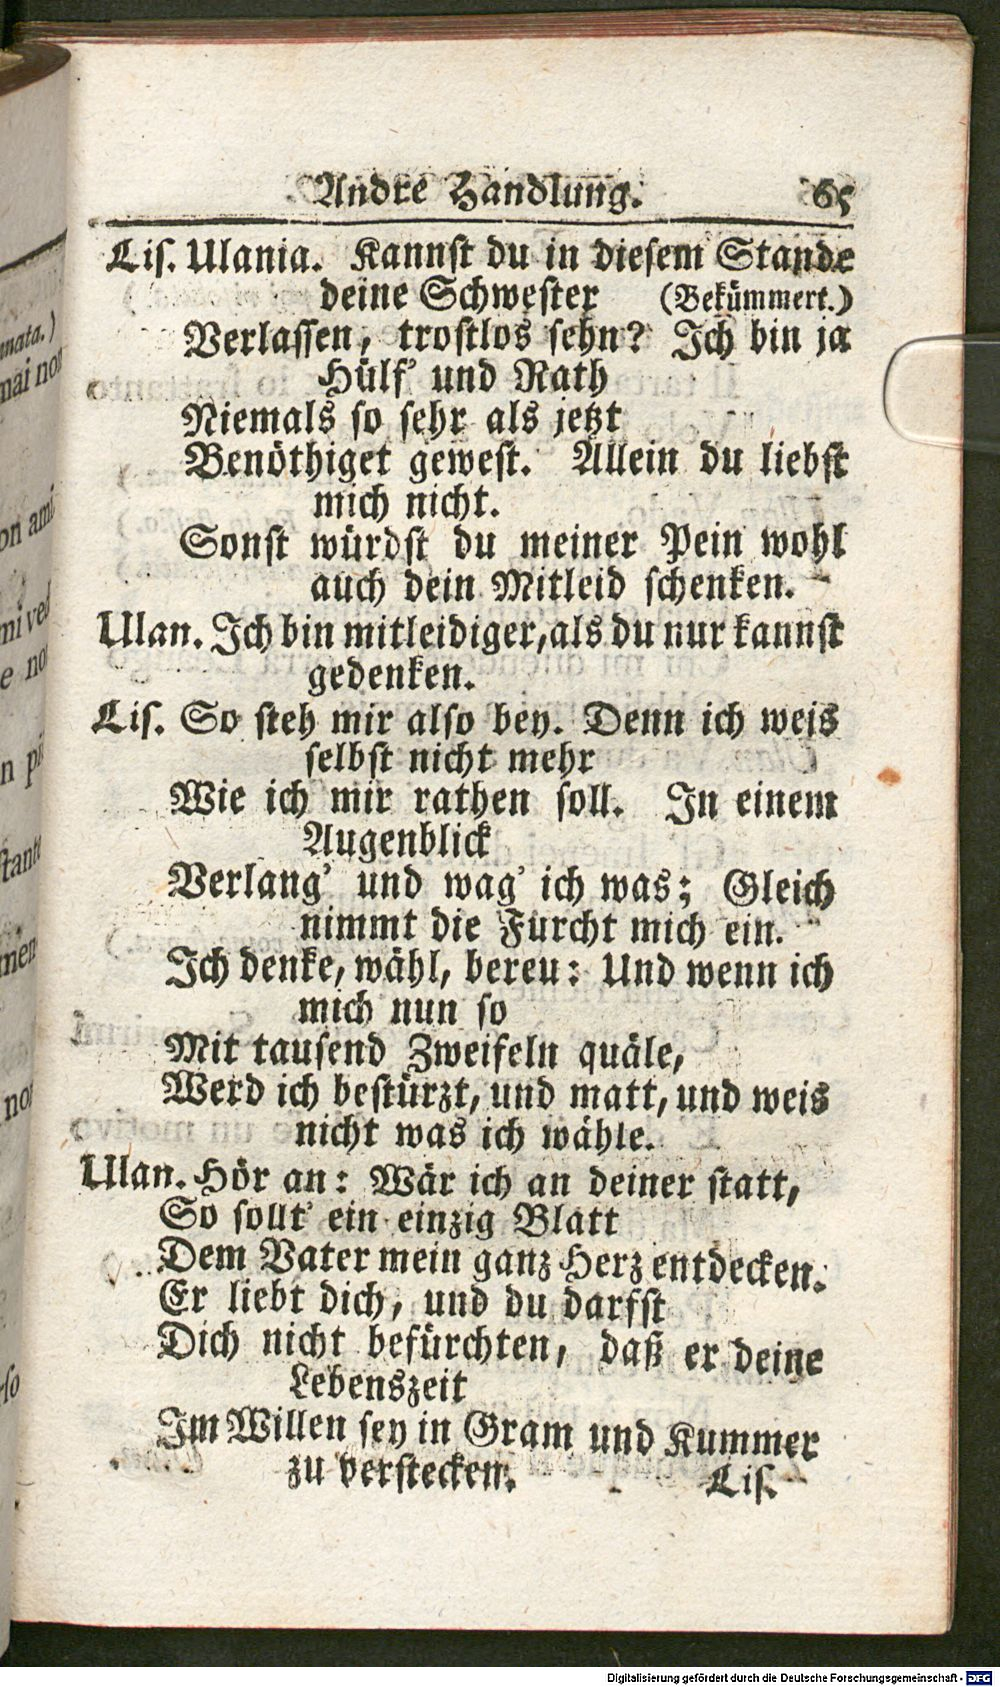 Andre Handlung. 65
Lis. Ulania. Kannst du in diesem Stande
deine Schwester (Bekümmert.)
Verlassen, trostlos sehn? Ich bin ja
Hülf' und Rath
Niemals so sehr als jetzt
Benöthiget gewest. Allein du liebst
mich nicht.
Sonst würdst du meiner Pein wohl
auch dein Mitleid schenken.
Ulan. Ich bin mitleidiger, als du nur kannst
gedenken.
Lis. So steh mir also bey. Denn ich weis
selbst nicht mehr
Wie ich mir rathen soll. In einem
Augenblick
Verlang' und wag' ich was; Gleich
nimmt die Furcht mich ein.
Ich denke, wähl, bereu: Und wenn ich
mich nun so
Mit tausend Zweifeln quäle,
Werd ich bestürzt, und matt, und weis
nicht was ich wähle.
Ulan. Hör an: Wär ich an deiner statt,
So sollt' ein einzig Blatt
Dem Vater mein ganz Herz entdecken.
Er liebt dich, und du darfst
Dich nicht befürchten, daß er deine
Lebenszeit
Im Willen sey in Gram und Kummer
zu verstecken.
Lis.
nata.)
mai non
on ami
mi ved
e no
n pi
stante
men
non
so
Digitalisierung gefördert durch die Deutsche Forschungsgemeinschaft - DFG